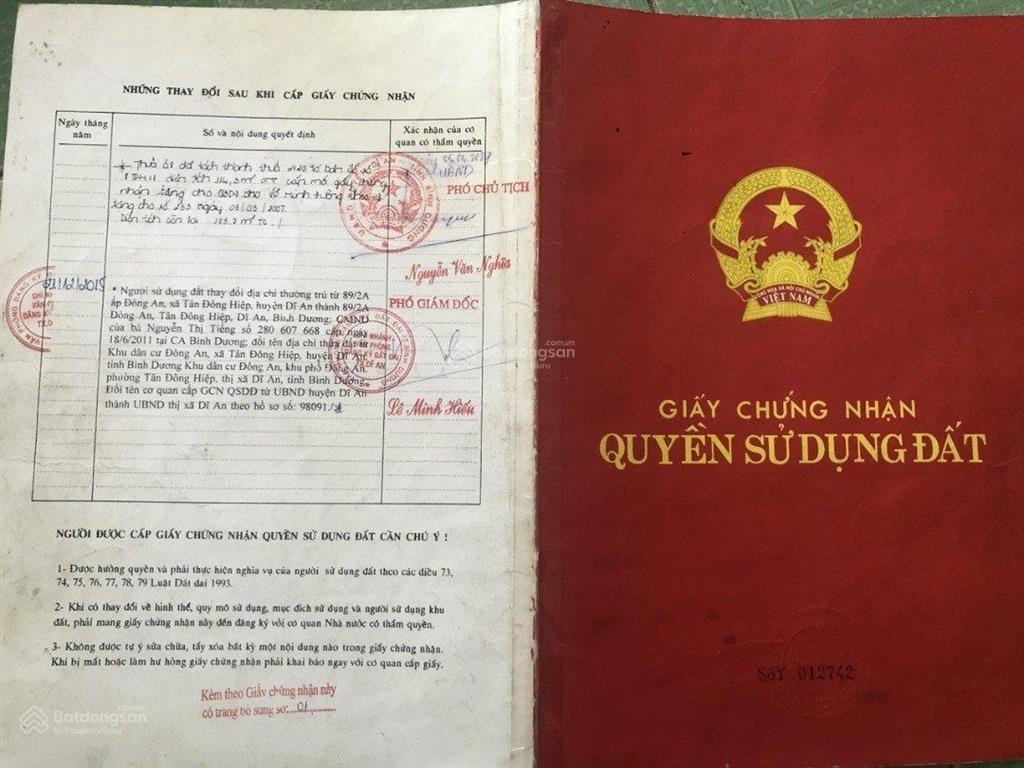 NHỮNG THAY ĐỔI SAU KHI CẤP GIẤY CHỨNG NHẬN
Ngày tháng năm
Số và nội dung quyết định
Xác nhận của cơ quan có thẩm quyền
* Thửa 68 đã tách thành thửa
diện tích cấp mới giấy chứng
nhận tặng cho QSDĐ cho Võ Minh
tặng cho số ngày 2007
Diện tích còn lại
UBND
PHÓ CHỦ TỊCH
Nguyễn Văn Nghĩa
01/12/2015
• Người sử dụng đất thay đổi địa chỉ thường trú từ 89/2A
ấp Đông An, xã Tân Đông Hiệp, huyện Dĩ An thành 89/2A
Đông An, Tân Đông Hiệp, Dĩ An, Bình Dương; CMND
của bà Nguyễn Thị Tiếng số 280 607 668 cấp ngày
18/6/2011 tại CA Bình Dương; đổi tên địa chỉ thửa đất từ
Khu dân cư Đông An, xã Tân Đông Hiệp, huyện Dĩ An,
tỉnh Bình Dương Khu dân cư Đông An, khu phố Đông An,
phường Tân Đông Hiệp, thị xã Dĩ An, tỉnh Bình Dương.
Đổi tên cơ quan cấp GCN QSDĐ từ UBND huyện Dĩ An
thành UBND thị xã Dĩ An theo hồ sơ số: 98091
PHÓ GIÁM ĐỐC
Lê Minh Hiếu
NGƯỜI ĐƯỢC CẤP GIẤY CHỨNG NHẬN QUYỀN SỬ DỤNG ĐẤT CẦN CHÚ Ý !
1- Được hưởng quyền và phải thực hiện nghĩa vụ của người sử dụng đất theo các điều 73,
74, 75, 76, 77, 78, 79 Luật Đất đai 1993.
2- Khi có thay đổi về hình thể, quy mô sử dụng, mục đích sử dụng và người sử dụng khu
đất, phải mang giấy chứng nhận này đến đăng ký với cơ quan Nhà nước có thẩm quyền.
3- Không được tự ý sửa chữa, tẩy xóa bất kỳ một nội dung nào trong giấy chứng nhận.
Khi bị mất hoặc làm hư hỏng giấy chứng nhận phải khai báo ngay với cơ quan cấp giấy.
Kèm theo Giấy chứng nhận này
có trang bổ sung số: 01
Batdongsan
by PropertyGuru
Batdongsan
.com.vn
VIỆT NAM
GIẤY CHỨNG NHẬN
QUYỀN SỬ DỤNG ĐẤT
012742
Batdongsan
by PropertyGuru